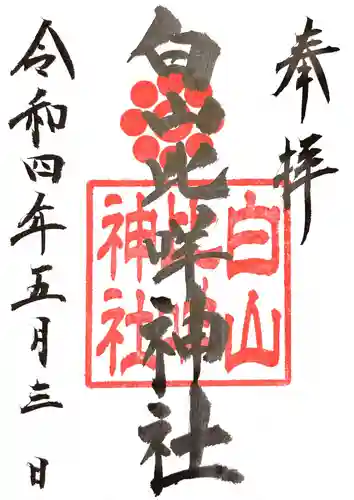 奉拝
白山比咩神社
白山比咩神社
令和四年五月三日